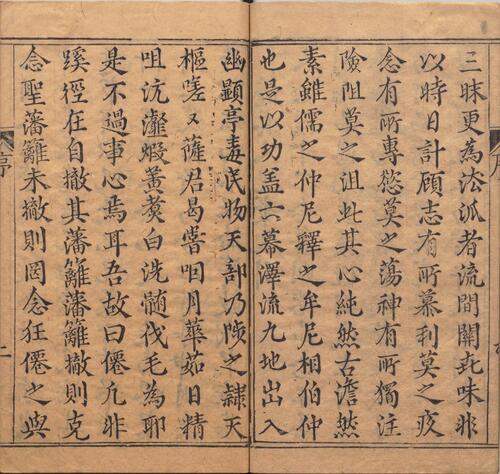 三昧更為法派者流間關㐂味非
以時日計顧志有所慕利莫之疚
念有所專慾莫之蕩神有所獨注
險阻莫之沮此其心純然古澹然
素雖儒之仲尼釋之牟尼相伯仲
也是以功盖六幕澤流九地出入
幽顯亭毒民物天部乃陟之隸天
樞嗟々薩君曷嘗咽月華茹日精
咀沆瀣蝦黃黃白洗髄伐毛為耶
是不過事心焉耳吾故曰僊凢非
蹊徑在自撤其藩籬藩籬撤則克
念聖藩籬未撤則罔念狂僊之與
序
二